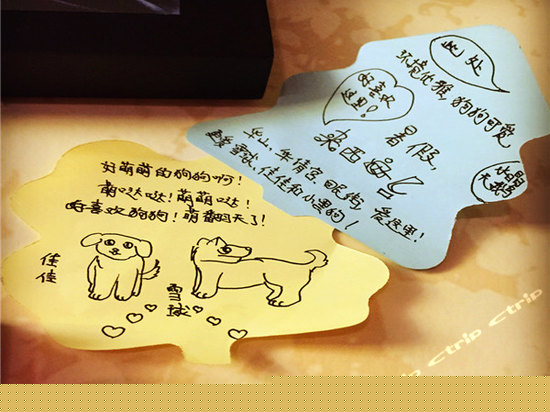 此处
环境优雅,狗狗可爱
好喜欢
这里!
暑假,
来西安
华山、华清宫、
雪球、佳佳和小黑狗!爱这里!
好萌萌的狗狗啊!
哒哒!萌萌哒!
好喜欢狗狗!萌翻天了!
佳佳
雪球
Ctrip Ctrip